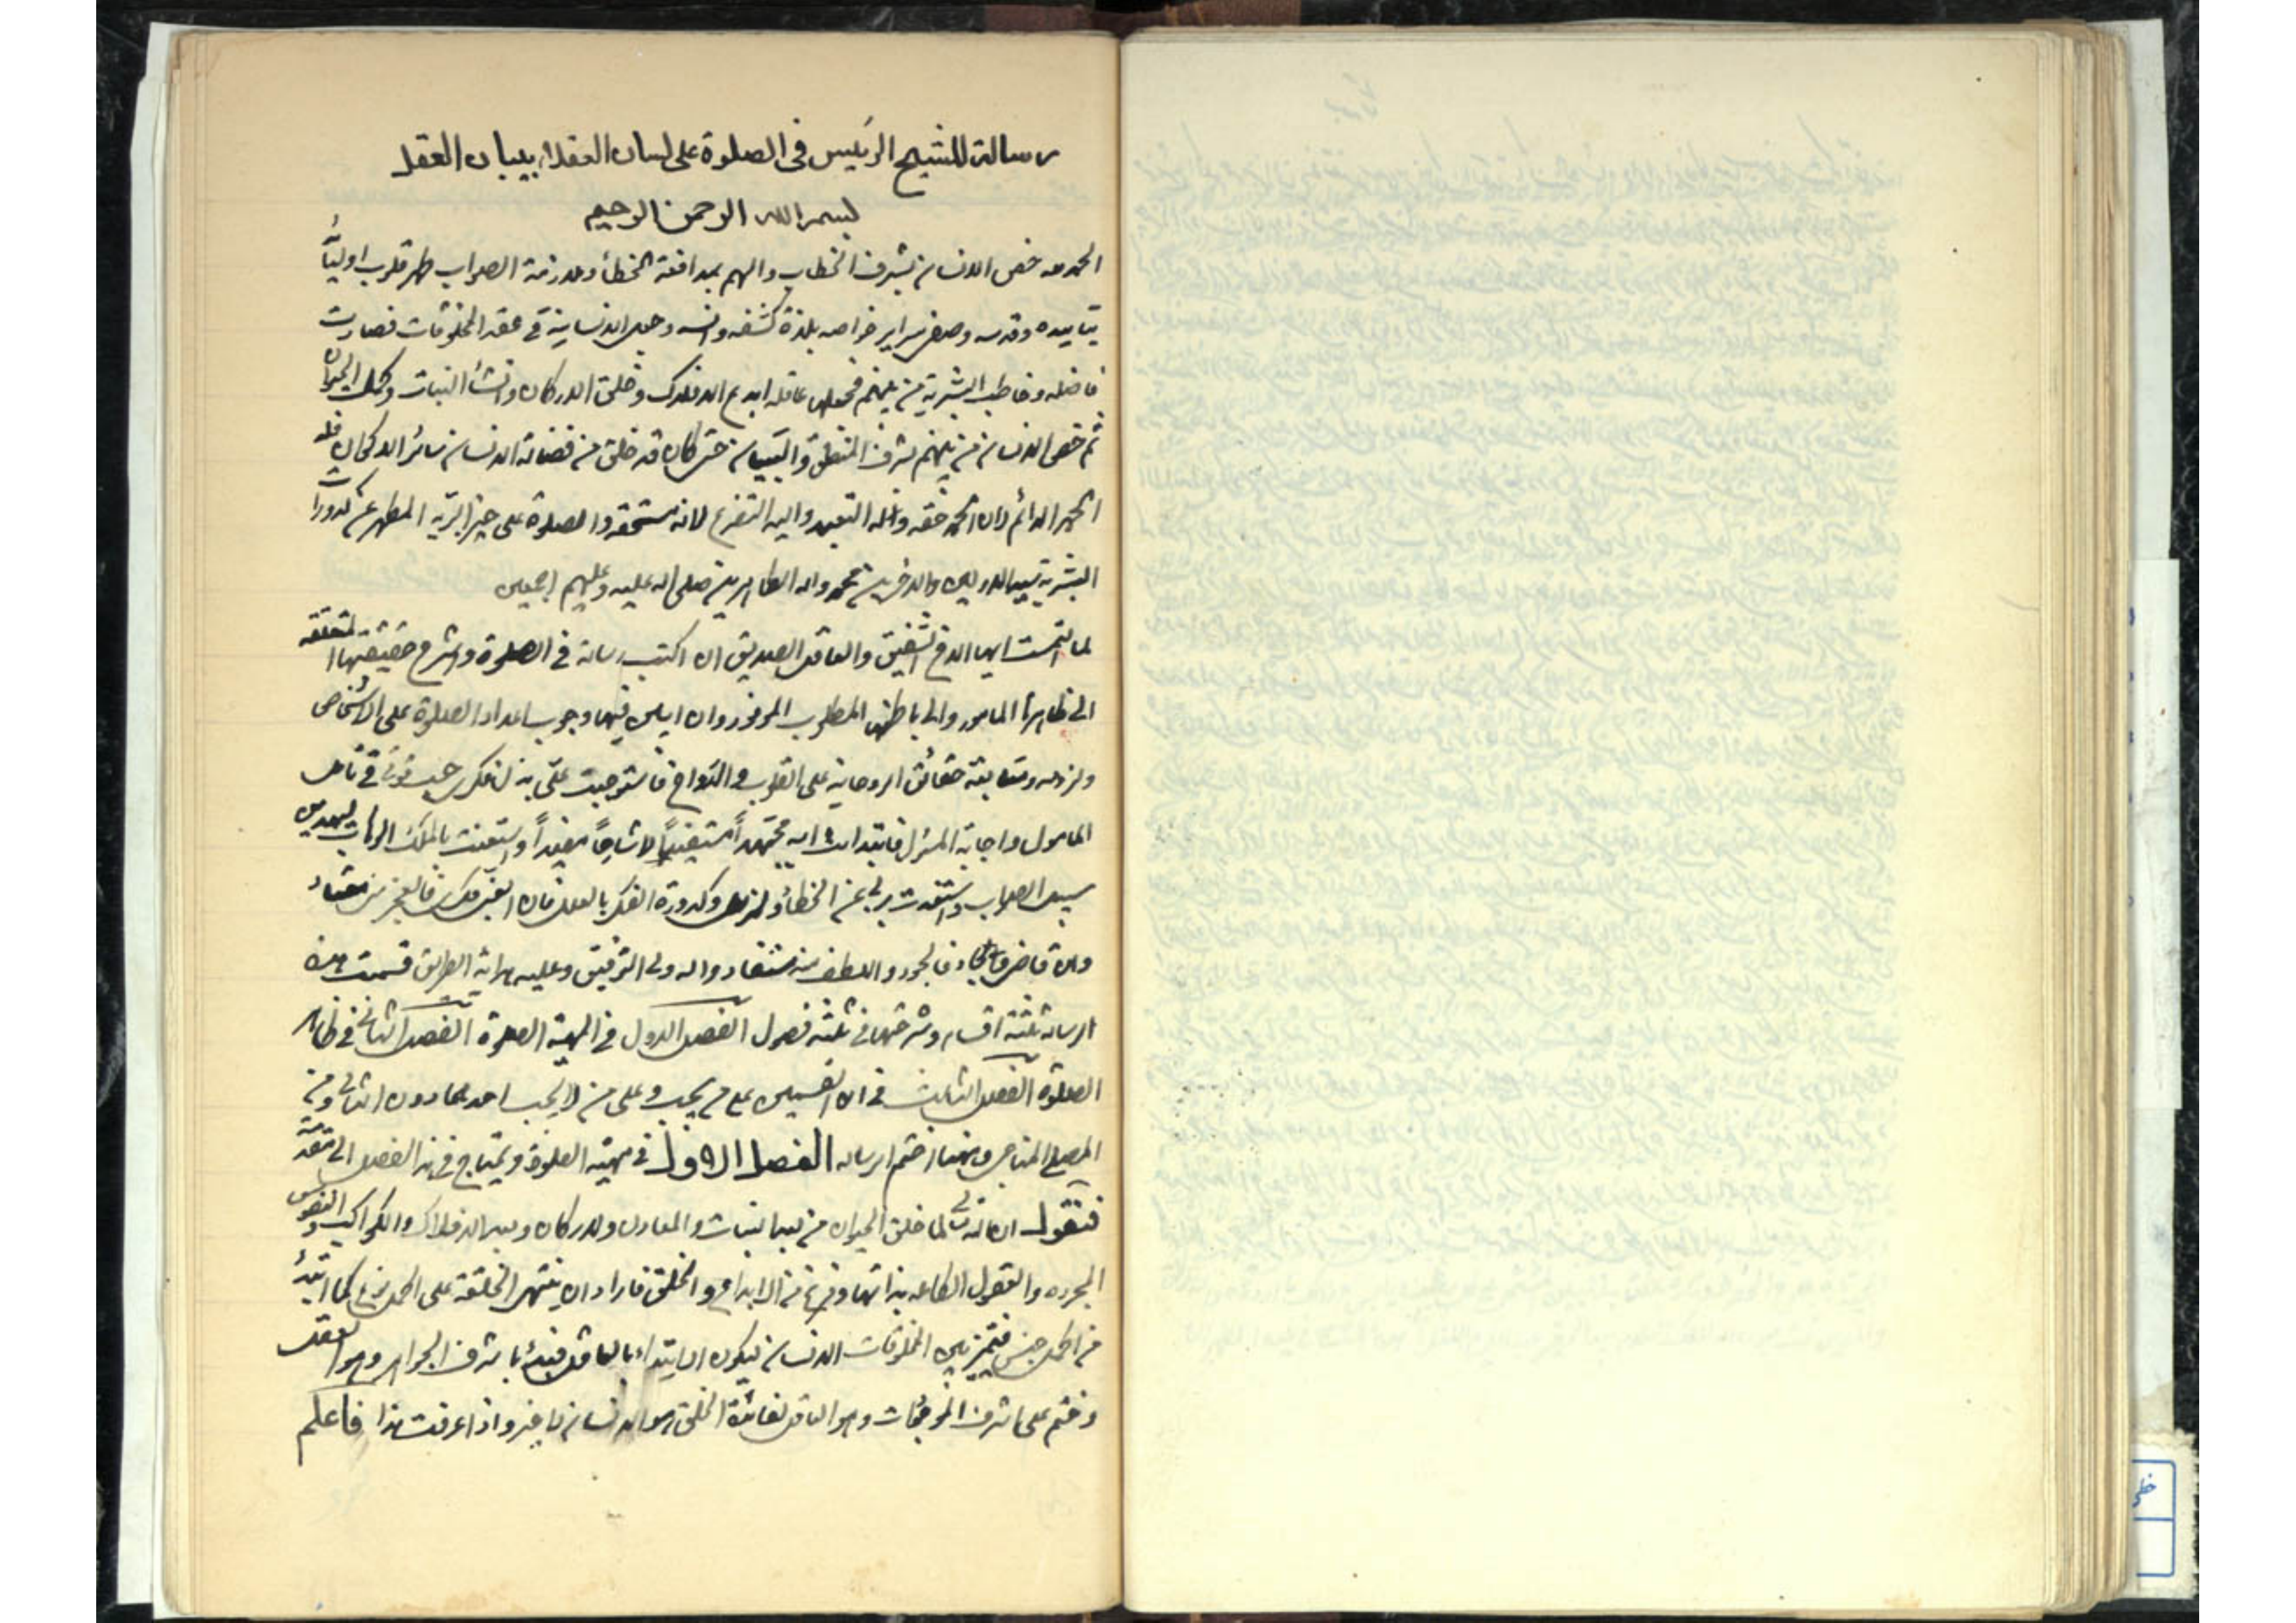 رسالة للشيخ الرئيس فى الصلوة على لسان العقلاء ببيان العقل
بسم الله الرحمن الرحيم
الحمد لله خص الانسان بشرف الخطاب والهم بمدافعة الخطأ وملازمة الصواب طهر قلوب اوليائه
بتاييده وقدسه وصفى سراير خواصه بلذة كشفه وانسه وجعل الانسانية فى عقد المخلوقات فصارت
فاضله وخاطب البشرية من بينهم فجعلها عاقله ابدع الافلاك وخلق الاركان وانشأ النبات وكمل الحيوان
ثم خص الانسان من بينهم بشرف المنطق والبيان حتى كان قد خلق من فضالة الانسان سائر الاكوان فله
الحمد الدائم لان الحمد حقه وله التعبد واليه التضرع لانه مستحقه والصلوة على خير البريه المطهر عن كدورات
البشرية سيد الاولين والاخرين محمد واله الطاهرين صلى الله عليه وعليهم اجمعين
لما التمست ايها الاخ الشفيق والعاقل الصديق ان اكتب رسالة فى الصلوة واشرح حقيقتها المتعلقه
الى ظاهرها المامور والى باطنها المطلوب الموفور وان ابين فيها وجوب اعداد الصلوة على الاشخاص
ولزوم ومتابعة حقائق الروحانية على القلوب والارواح فاستوجبت على بذل فكرى حسب قوتى فى تامل
المامول واجابة المسؤل فابتدات به مجتهداً مستفيداً لا شارحاً مفيداً واستعنت بالملك الوهاب ليهدين
سبيل الصواب واستعذت بربى عن الخطأ والزلل وكدورة الفكر بالعلل فان اعقن فكرى فالعجز من معتاد
وان فاض فالجود واللطف منه مستفاد والله ولى التوفيق وعليه هداية الطريق قسمت هذه
الرسالة ثلثة اقسام وشرحتها فى ثلثة فصول الفصل الاول فى المهية الصلوة الفصل الثانى فى ظاهر
الصلوة الفصل الثالث فى ان القسمين على من يجب وعلى من لا يجب احدهما دون الثانى ومن
المصلى المناجى وههنا اختم الرساله الفصل الاول فى مهية الصلوة ويحتاج فى هذا الفصل الى مقدمة
فنقول ان الله تعالى لما خلق الحيوان من بعد النبات والمعادن والاركان وبعد الافلاك والكواكب والنفوس
المجرده والعقول الكامله بذاتها وفرغ من الابداع والخلق فاراد ان ينتهى الخلقة على اكمل نوع كما ابتدأ
من اكمل جنس فتميز بين المخلوقات الانسان ليكون الابتداء بالعاقل فبدأ باشرف الجواهر وهو العقل
وختم على اشرف الموجودات وهو العاقل لفائدة الخلق هو الانسان لا غير واذا عرفت هذا فاعلم